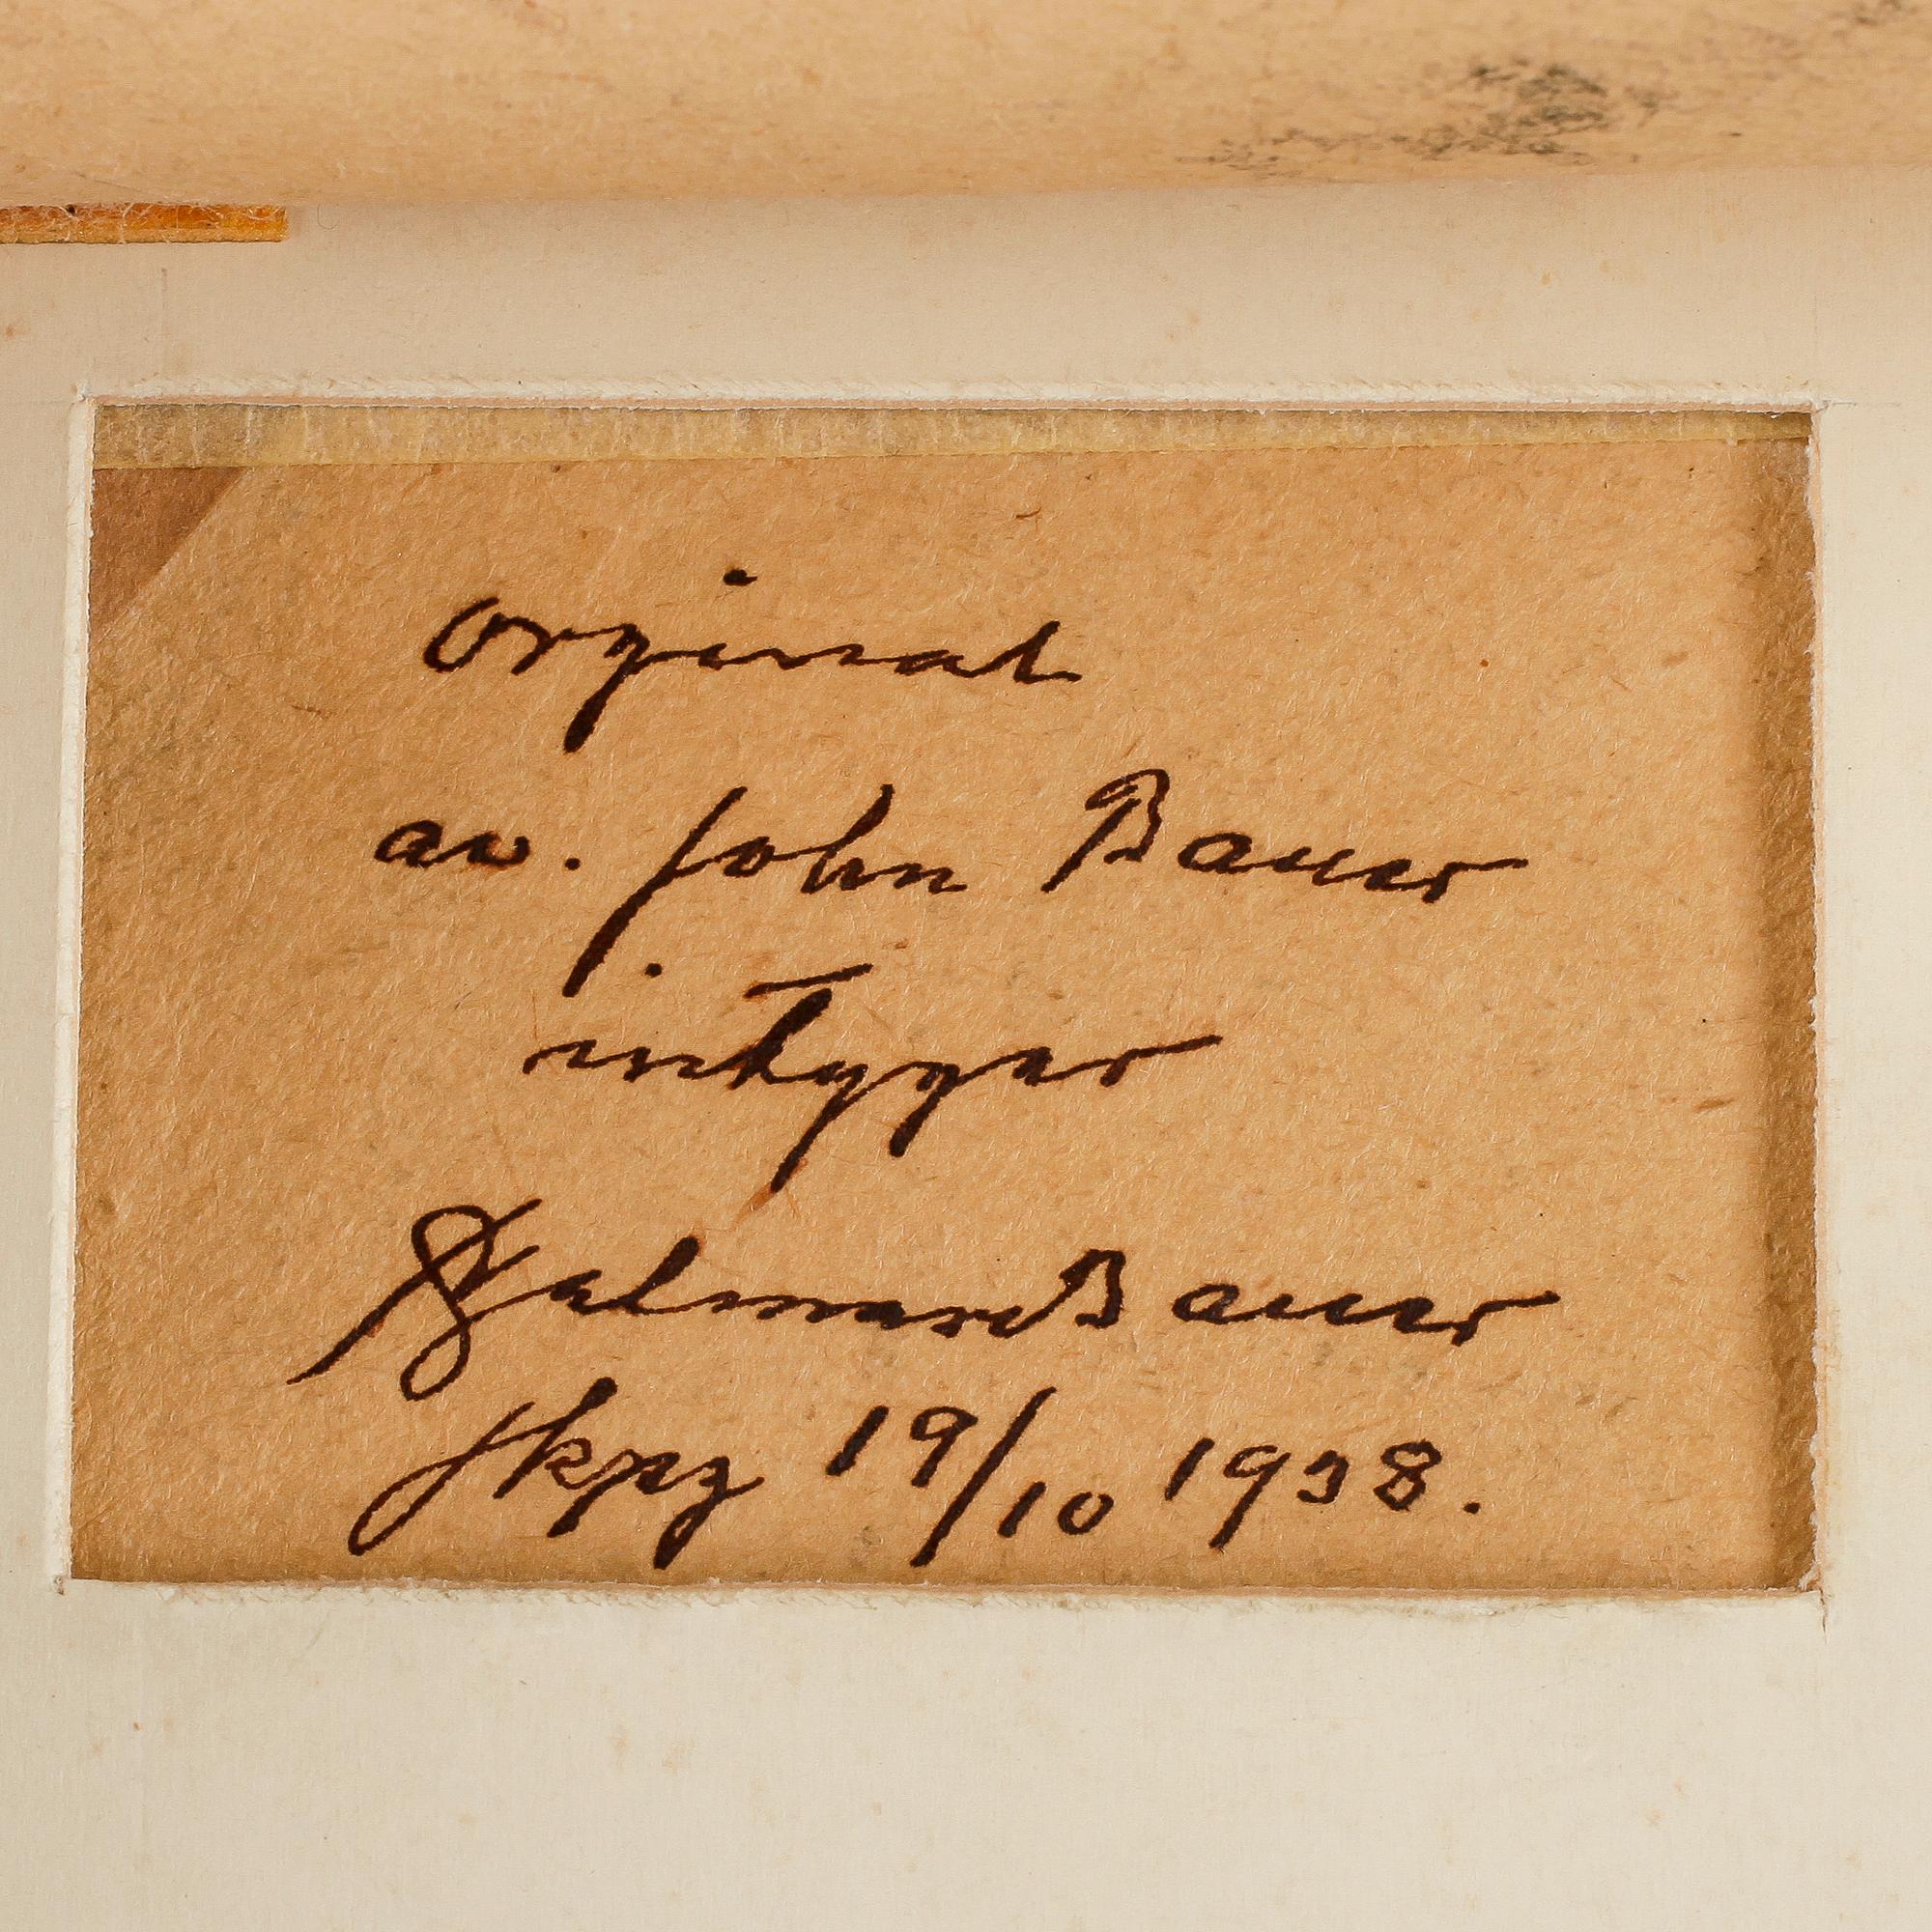 Orginal
av. John Bauer
intygger
Hjalmar Bauer
Jkpg 19/10 1938.